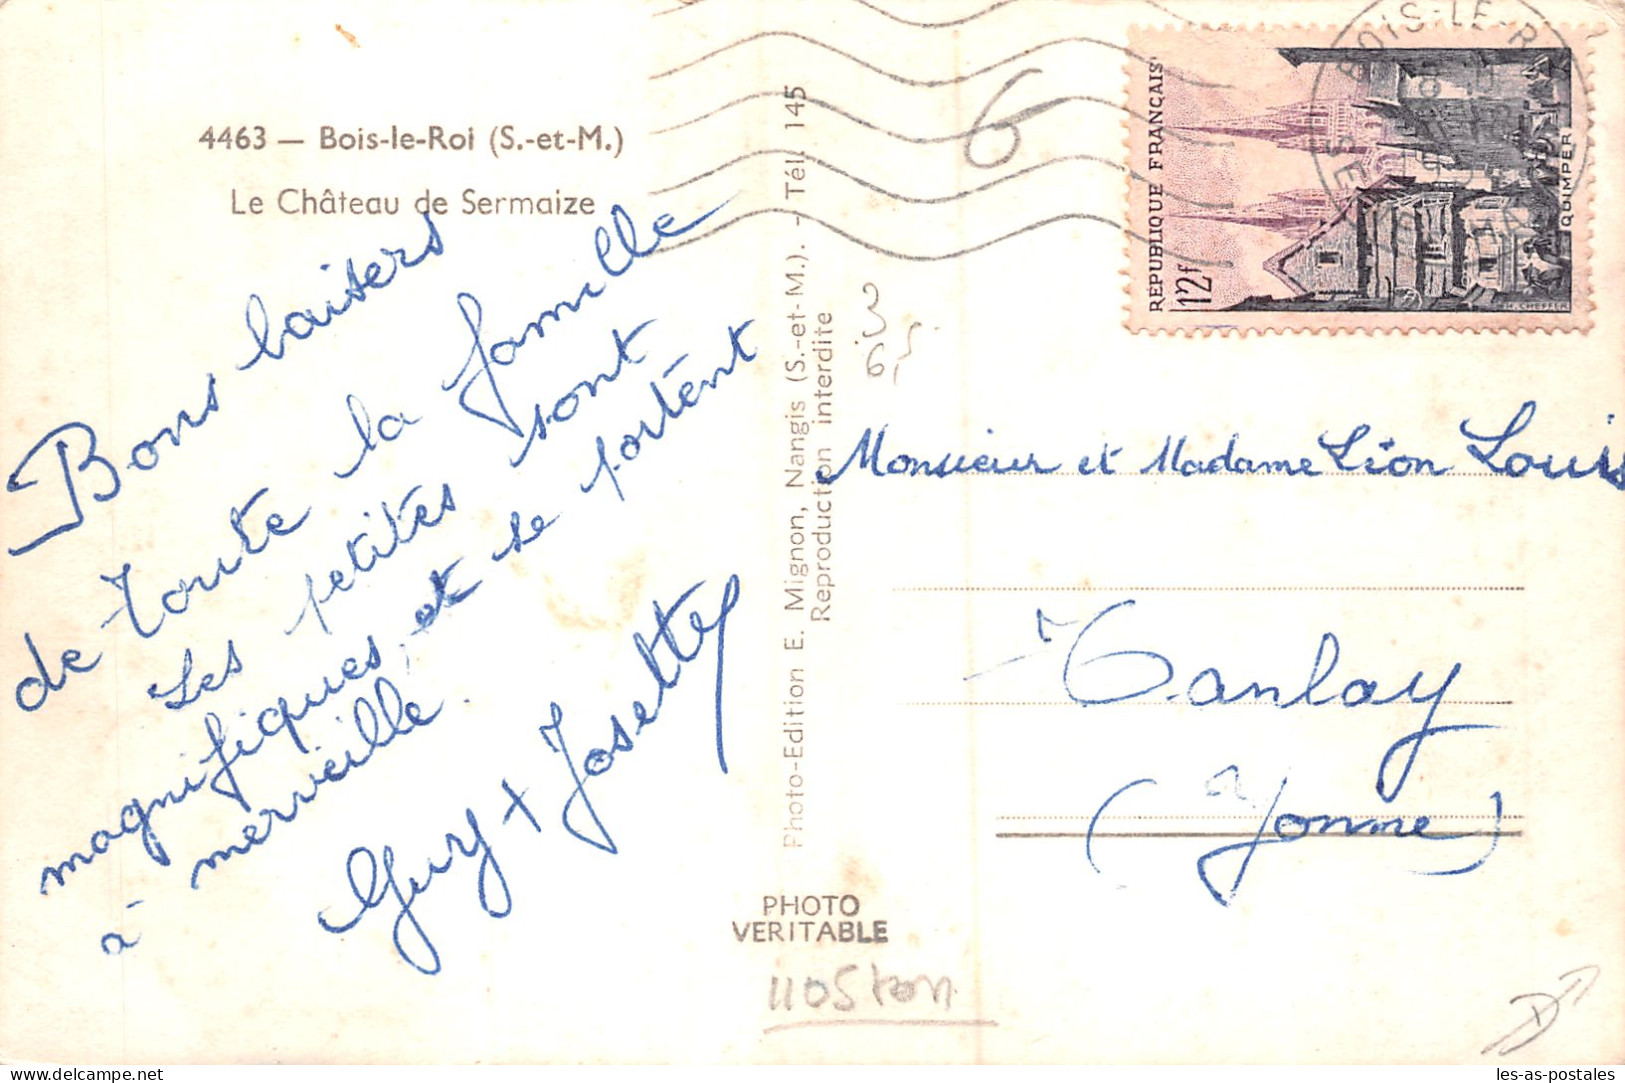 4463 — Bois-le-Roi (S.-et-M.)
Le Château de Sermaize
Bons baisers
de toute la famille
Les petites sont
magnifiques et se portent
à merveille.
Guy + Josette
Photo-Edition E. Mignon, Nangis (S.-et-M.). - Tél. 145
Reproduction interdite
PHOTO
VERITABLE
6
3
6,5
REPUBLIQUE FRANÇAISE
12f
QUIMPER
BOIS-LE-R
SEINE
Monsieur et Madame Léon Louis
à Tanlay
(Yonne)
Delcampe.net
les-as-postales